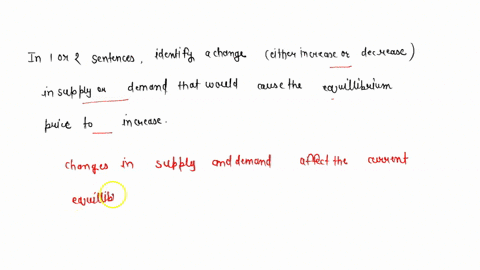 In 1 or 2 sentences, identify a change (either increase or decrease)
in supply or demand that would cause the equillibrium
price to increase.
changes in supply and demand affect the current
equillib